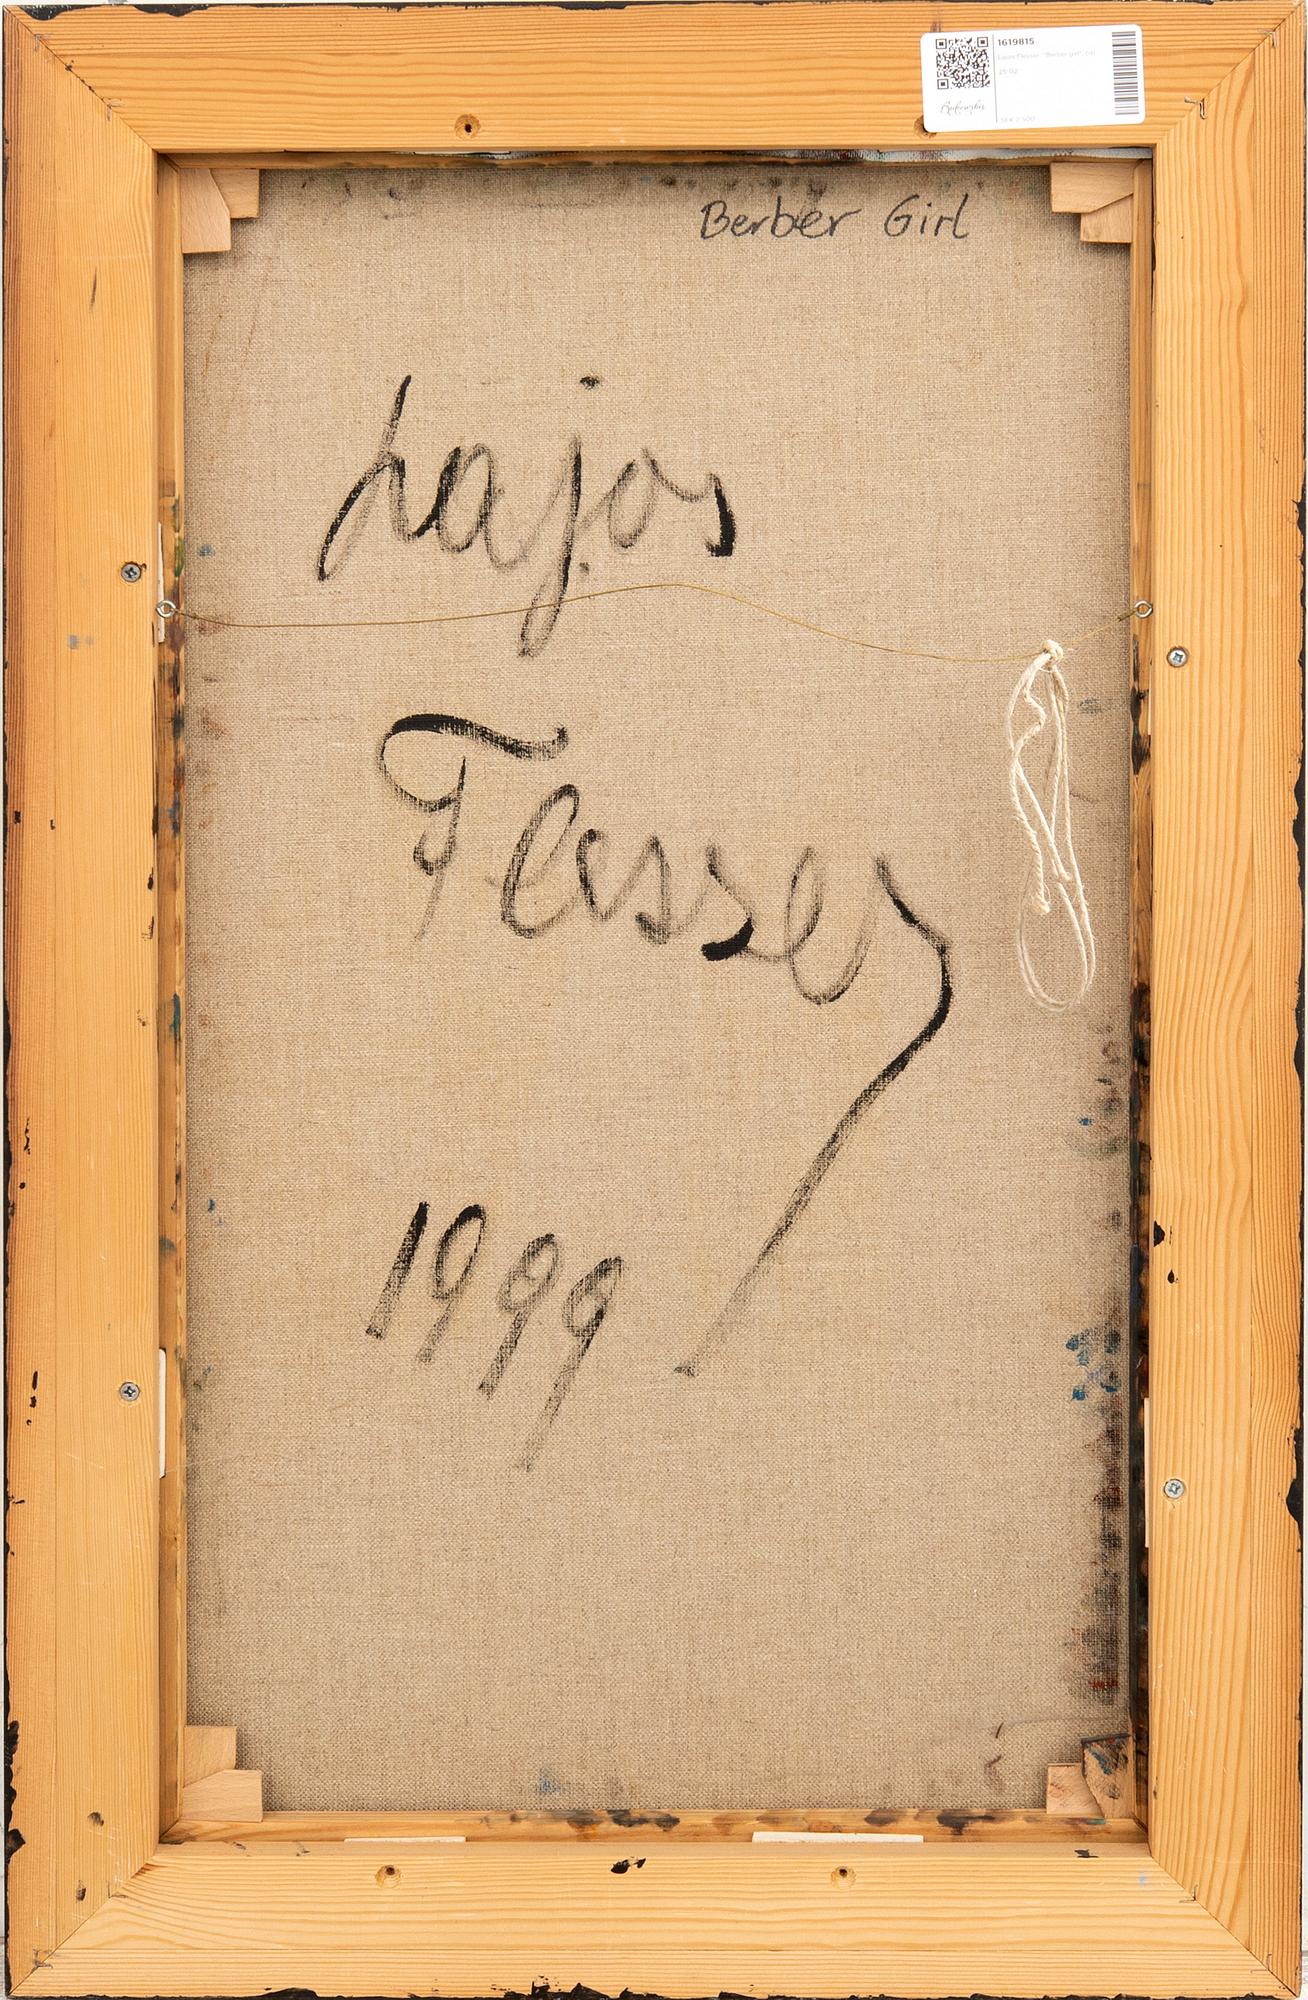 1619815
Lajos Flesser, "Berber girl", olja
25-02
Bukowskis
SEK 2 500
Berber Girl
Lajos
Flesser
1999